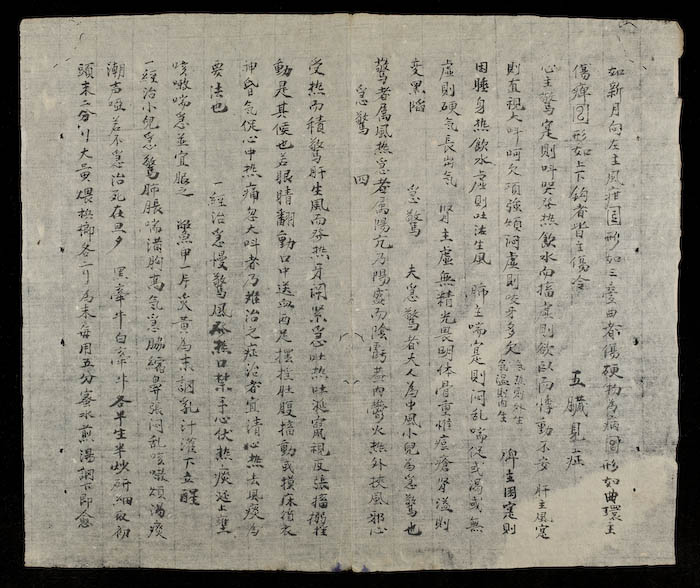 如新月向左主風疳 形如三疊曲者傷硬物 形如曲環主
傷疳 形如上下鈎者皆主傷冷　五臟見症
心主驚寔則叫哭發热飲水而搐虛則欲臥而悸動不安 肝主風寔
則直視大叫呵欠項強頓悶虛則咬牙多欠 氣热則外生 氣溫則內生 脾主困寔則
困睡身热飲水虛則吐法生風 肺主喘寔則悶乱喘促或渴或無
虛則硬氣長出氣 腎主虛無精光畏明体骨重惟痘瘡腎寔則
变黑陷　急驚 夫急驚者大人為中風小兒為急驚也
驚者屬風热急者屬陽亢乃陽盛而陰虧
急驚 四
受热而積驚肝生風而發热牙関緊急吐涎竄視反張搐搦
動是其侯也若眼睛翻動口中送血两足擺性肚腹搐動或摸床
神昏氣促心中热痛忽大叫者乃難治之症治者宜清心热去風痰為
要法也　一經治急慢驚風發热口禁手心伏热痰涎上壅
咳嗽喘急並宜服之 鱉甲一片炙黃為末調乳汁灌下立醒
一經治小兒急驚肺脹喘滿胸高氣急脇縮鼻張悶乱咳嗽煩渴痰
潮声嗄若不急治死在旦夕 黑牽牛白牽牛各半生半炒研細取初
頭末二分半大黃煨梹榔各一分為末每用五分蜜水煎湯調下即愈